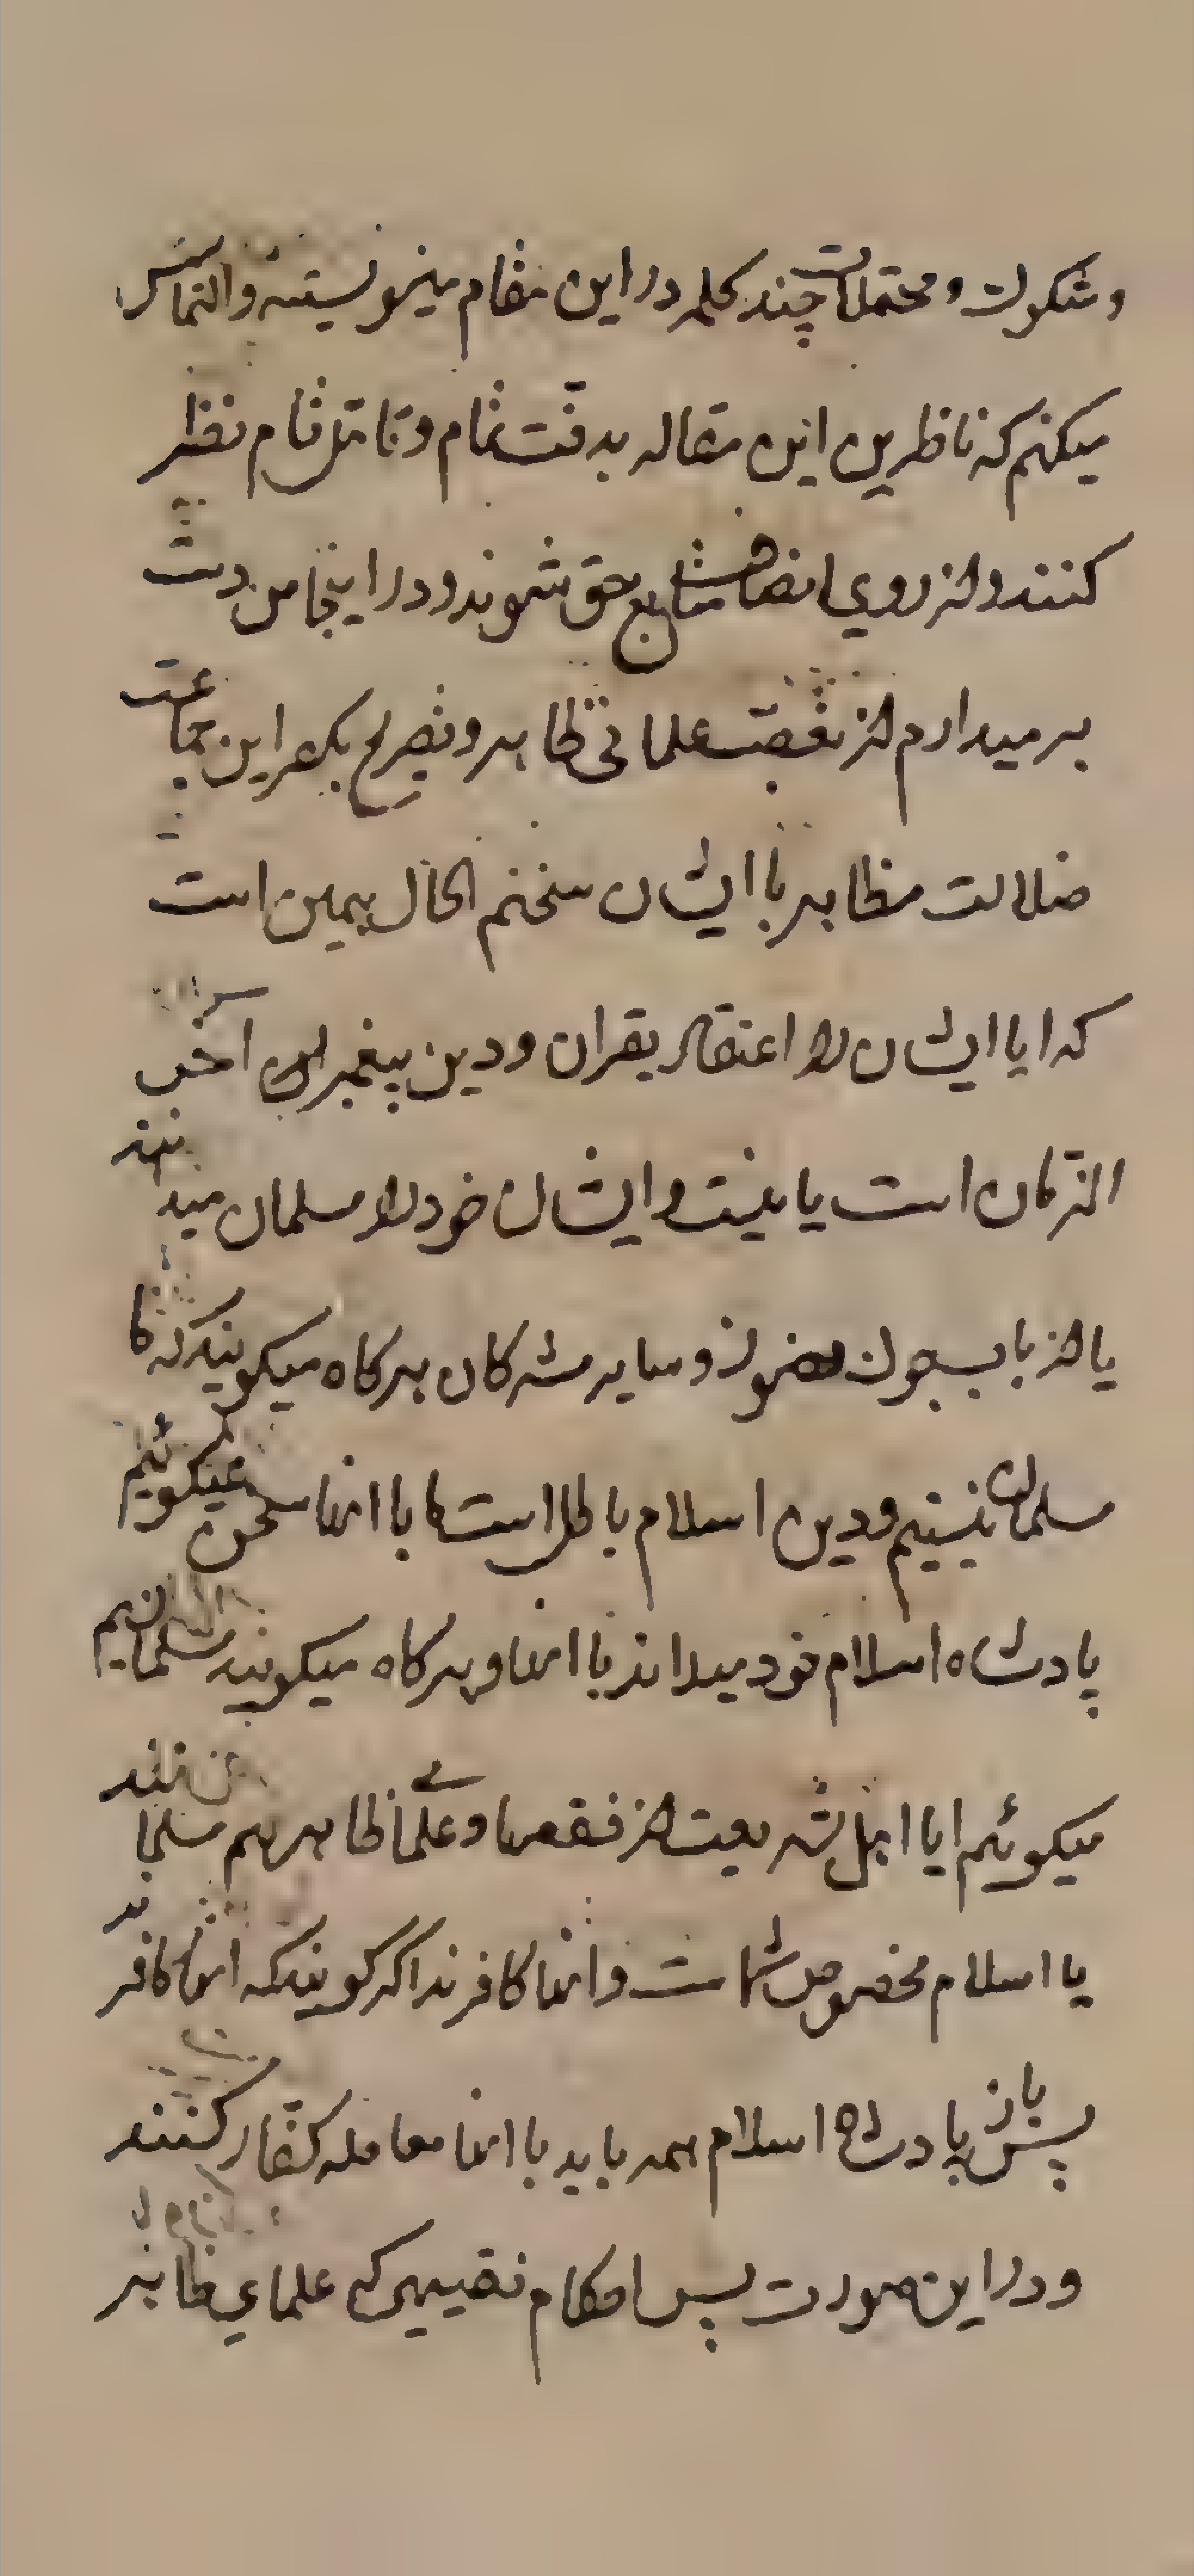 و شکوک و محتملات چند کلمه در این مقام مینویسند و التماس
میکنم که ناظرین این مقاله بدقت تمام و تامل تام نظر
کنند و از روی انصاف متابع حق شوند و در اینجا من دست
برمیدارم از تعصب علمائی ظاهر و تصریح بکفر این جماعت
ضلالت مظاهر با ایشان سخنم الحال همین است
که ایا ایشان را اعتقاد بقران و دین پیغمبر آخر
الزمان است یا نیست و ایشان خود را مسلمان میدانند
یا از باب سایر مشرکان هرکاه میکویند که ما
مسلمان نیستیم و دین اسلام باطل است ما با انها سخن نمیکوئیم
پادشاه اسلام خود میداند با انها و هرکاه میکویند مسلمانیم
میکوئیم ایا اهل شریعت از فقها و علمای ظاهر هم مسلمانند
یا اسلام مخصوص شماست و انها کافرند اگر کویند که انها کافرند
پس باز پادشاه اسلام همه باید با انها معامله کفار کنند
و در این صورت پس احکام که علمای ظاهر